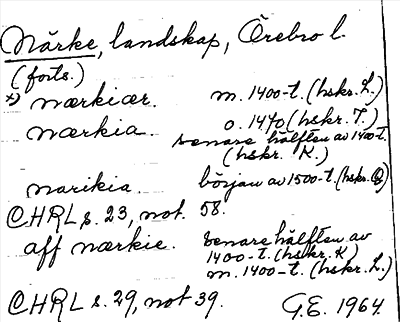 Närke, landskap, Örebro l.
(forts.)
x) nærkiær. m. 1400-t. (hskr. L.)
nærkia. o. 1470 (hskr. T.)
senare hälften av 1400-t.
(hskr. K.)
narikia. början av 1500-t. (hskr. Q)
CHRL s. 23, not. 58.
aff nærkie. senare hälften av
1400-t. (hskr. K)
m. 1400-t. (hskr. L.)
CHRL s. 29, not 39. G.E. 1964